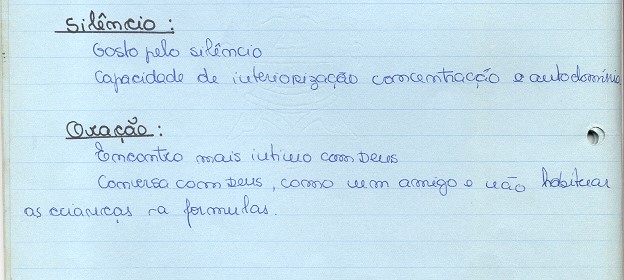 Silêncio:
Gosto pelo silêncio
Capacidade de interiorização concentracção e autodomínio
Oração:
Encontro mais intimo com Deus
Conversa com Deus, como um amigo e não habituar
as crianças a formulas.